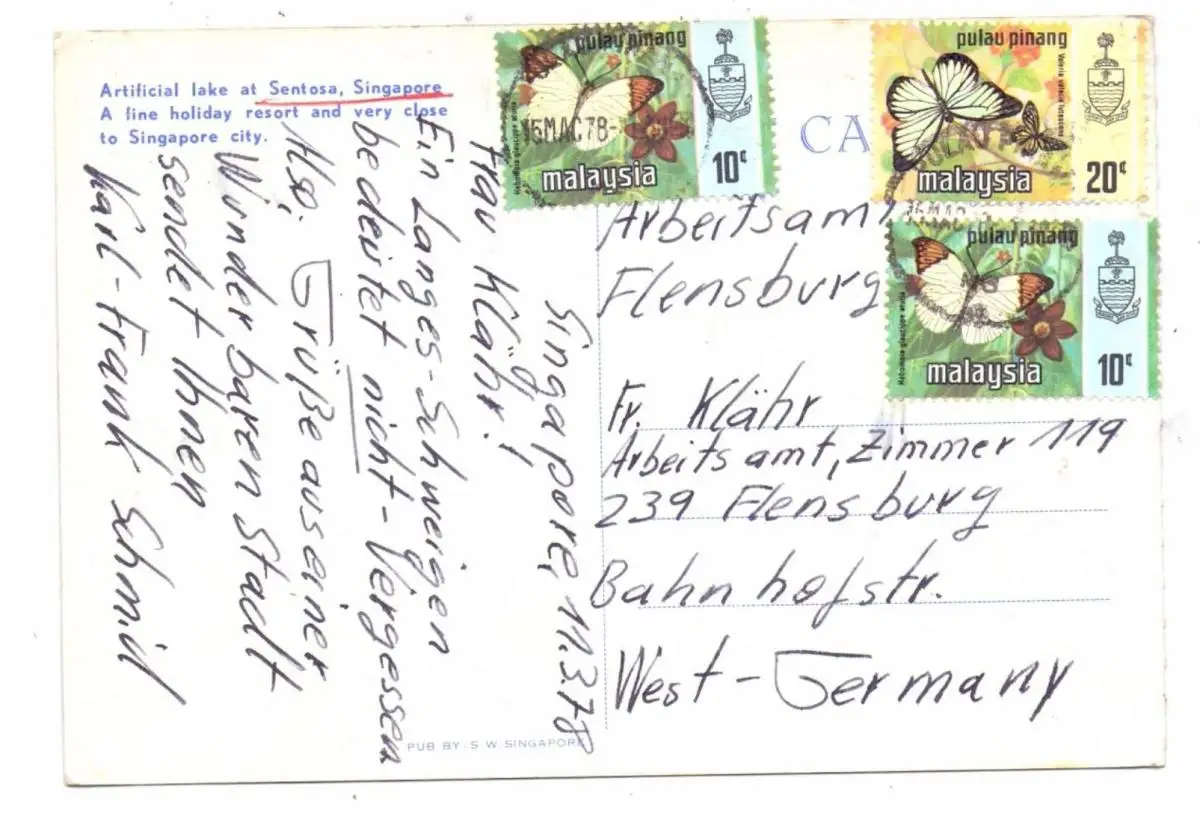 Artificial lake at Sentosa, Singapore
A fine holiday resort and very close
to Singapore city.
Singapore, 11.3.78
Frau Klähr!
Ein Langes-Schweigen
bedeutet nicht-Vergessen
Also, Grüße aus einer
Wunderbaren Stadt
sendet Ihnen
Karl-Frank Schmil
PUB BY. S W. SINGAPORE
pulau pinang
15MAC78
malaysia
10c
CA
pulau pinang
malaysia
20c
pulau pinang
malaysia
10c
Arbeitsamt
Flensburg
Fr. Klähr
Arbeitsamt, Zimmer 119
239 Flensburg
Bahnhofstr.
West-Germany